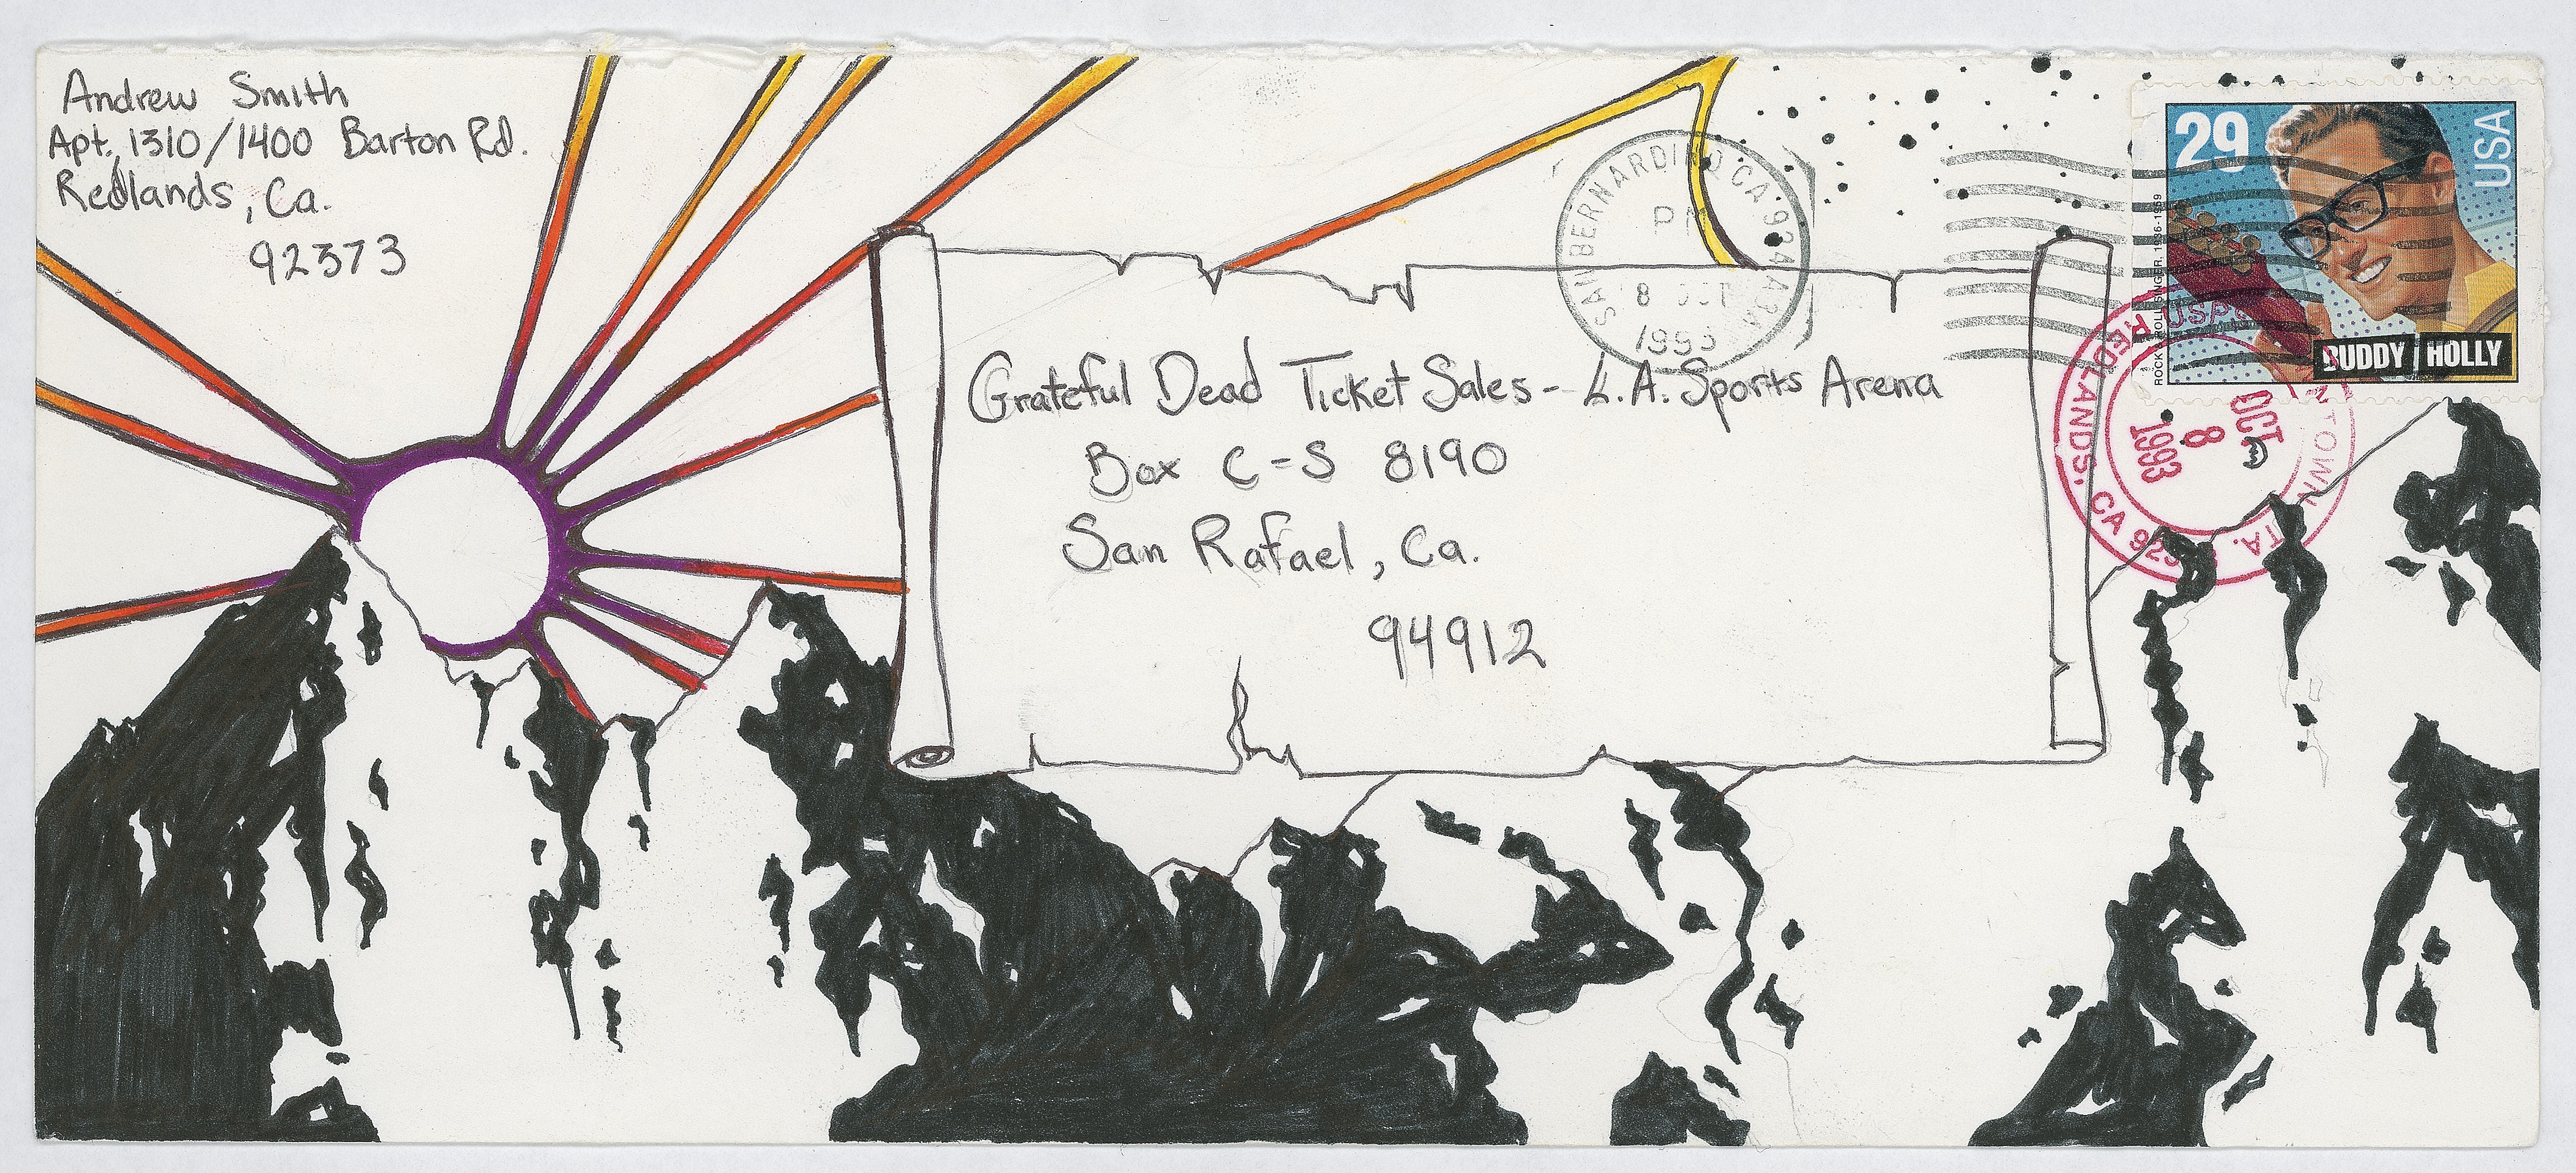 Andrew Smith
Apt. 1310/1400 Barton Rd.
Redlands, Ca.
92373
SAN BERNARDINO CA 924
PM
8 OCT
1993
29
USA
ROCK & ROLL SINGER, 1936-1959
BUDDY HOLLY
USPO
REDLANDS, CA
STA.
OCT
8
1993
Grateful Dead Ticket Sales - L.A. Sports Arena
Box C-S 8190
San Rafael, Ca.
94912